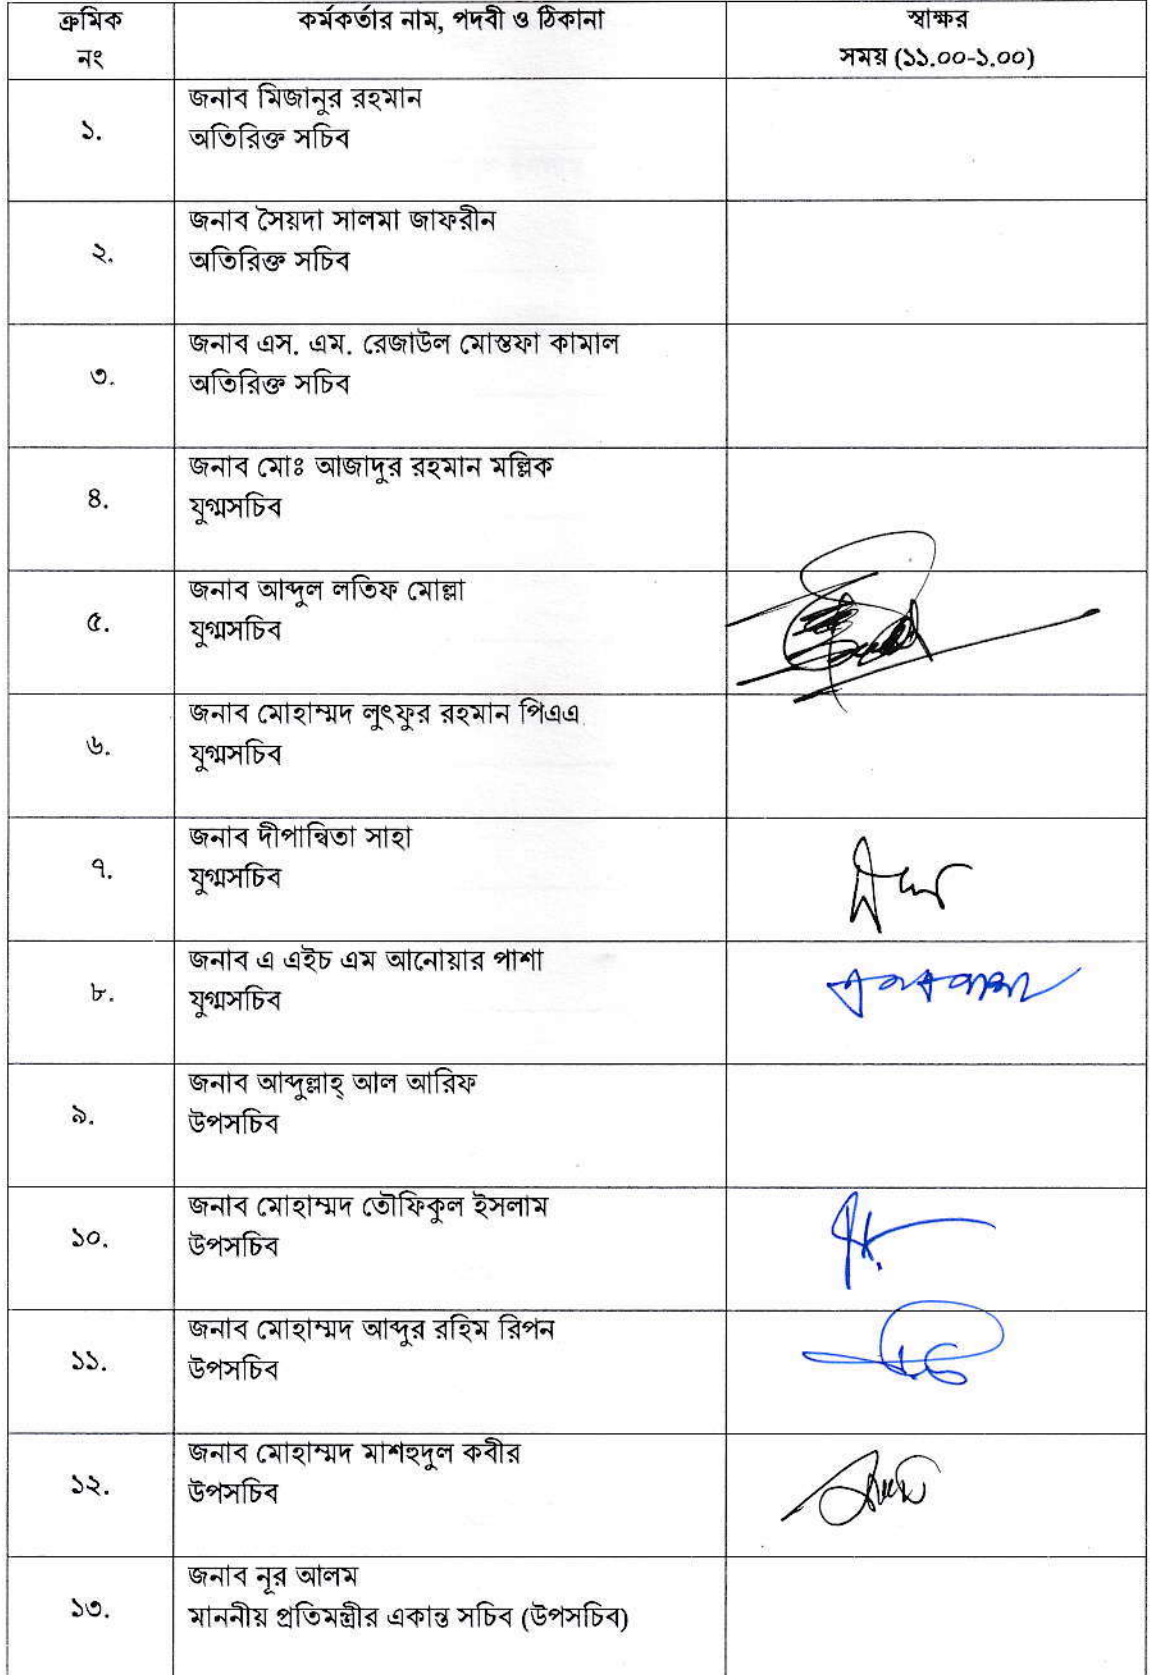 ক্রমিক
নং
কর্মকর্তার নাম, পদবী ও ঠিকানা
স্বাক্ষর
সময় (১১.০০-১.০০)
১.
জনাব মিজানুর রহমান
অতিরিক্ত সচিব
২.
জনাব সৈয়দা সালমা জাফরীন
অতিরিক্ত সচিব
৩.
জনাব এস. এম. রেজাউল মোস্তফা কামাল
অতিরিক্ত সচিব
৪.
জনাব মোঃ আজাদুর রহমান মল্লিক
যুগ্মসচিব
৫.
জনাব আব্দুল লতিফ মোল্লা
যুগ্মসচিব
৬.
জনাব মোহাম্মদ লুৎফুর রহমান পিএএ
যুগ্মসচিব
৭.
জনাব দীপান্বিতা সাহা
যুগ্মসচিব
৮.
জনাব এ এইচ এম আনোয়ার পাশা
যুগ্মসচিব
৯.
জনাব আব্দুল্লাহ্ আল আরিফ
উপসচিব
১০.
জনাব মোহাম্মদ তৌফিকুল ইসলাম
উপসচিব
১১.
জনাব মোহাম্মদ আব্দুর রহিম রিপন
উপসচিব
১২.
জনাব মোহাম্মদ মাশহুদুল কবীর
উপসচিব
১৩.
জনাব নূর আলম
মাননীয় প্রতিমন্ত্রীর একান্ত সচিব (উপসচিব)